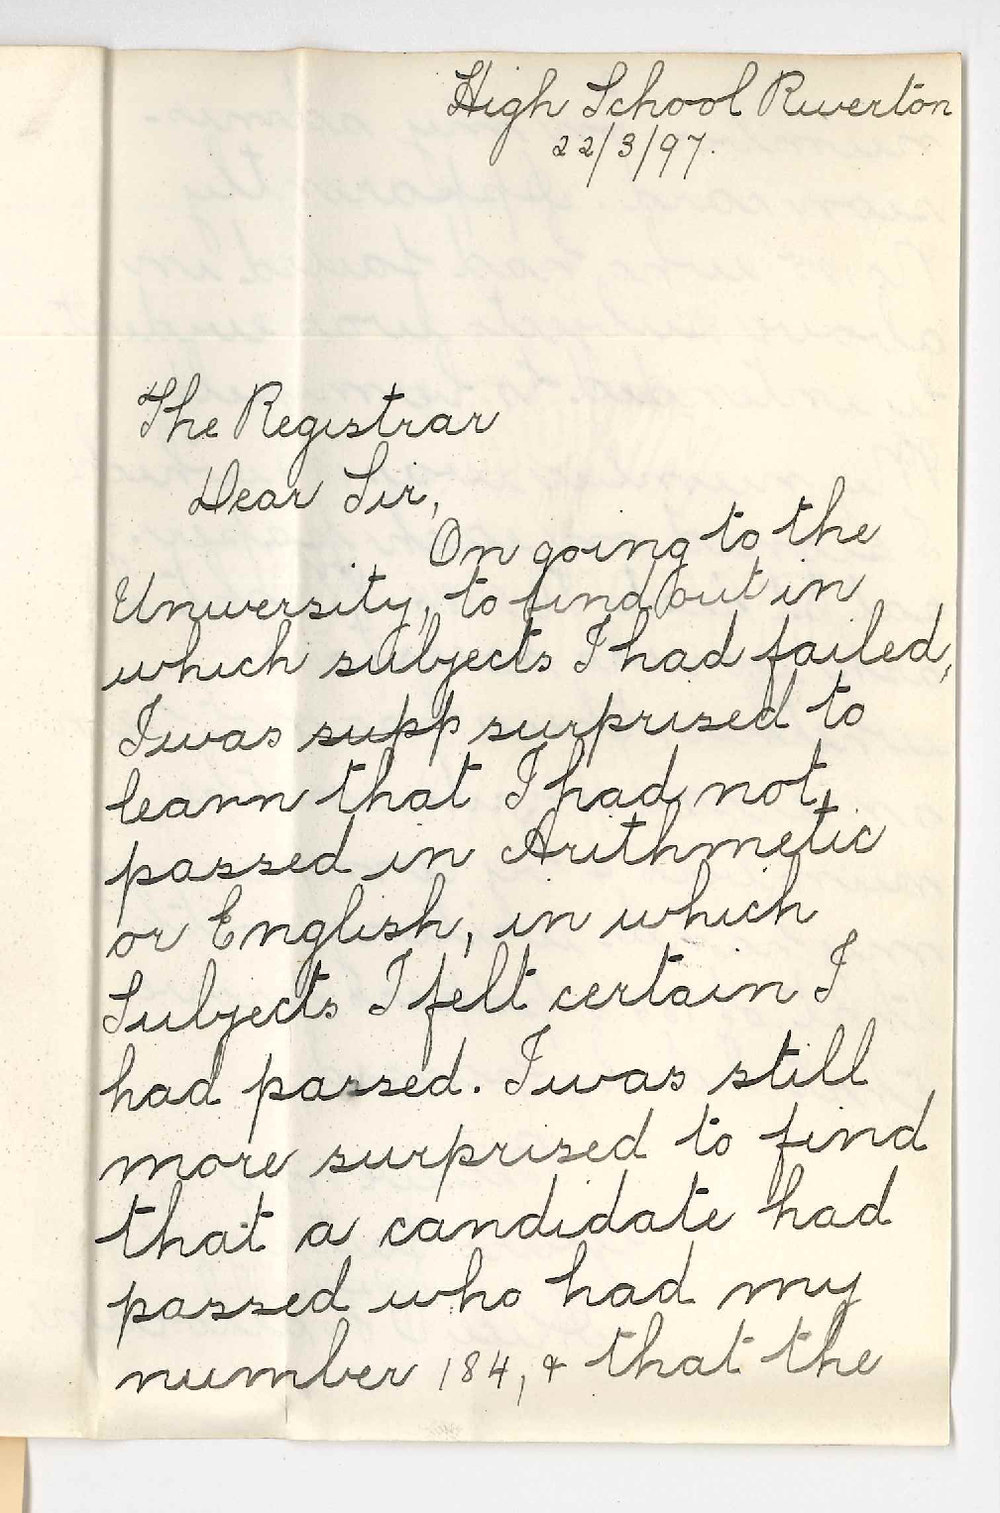 High School Riverton
22/3/97.
The Registrar
Dear Sir,
On going to the
University, to find out in
which subjects I had failed,
I was supp surprised to
learn that I had not
passed in Arithmetic
or English, in which
Subjects I felt certain I
had passed. I was still
more surprised to find
that a candidate had
passed who had my
number 184, & that the